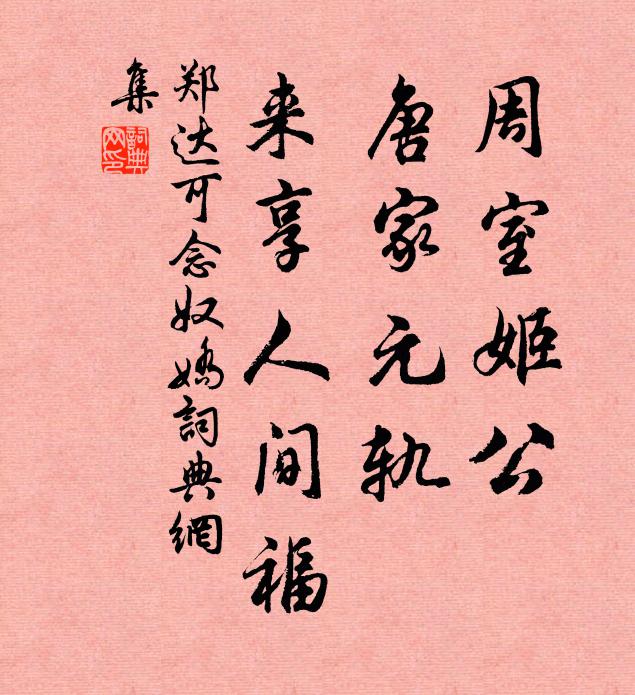 周室姬公
唐家元轨
来享人间福
郑达可念奴娇詞典網
集
詞典
网印